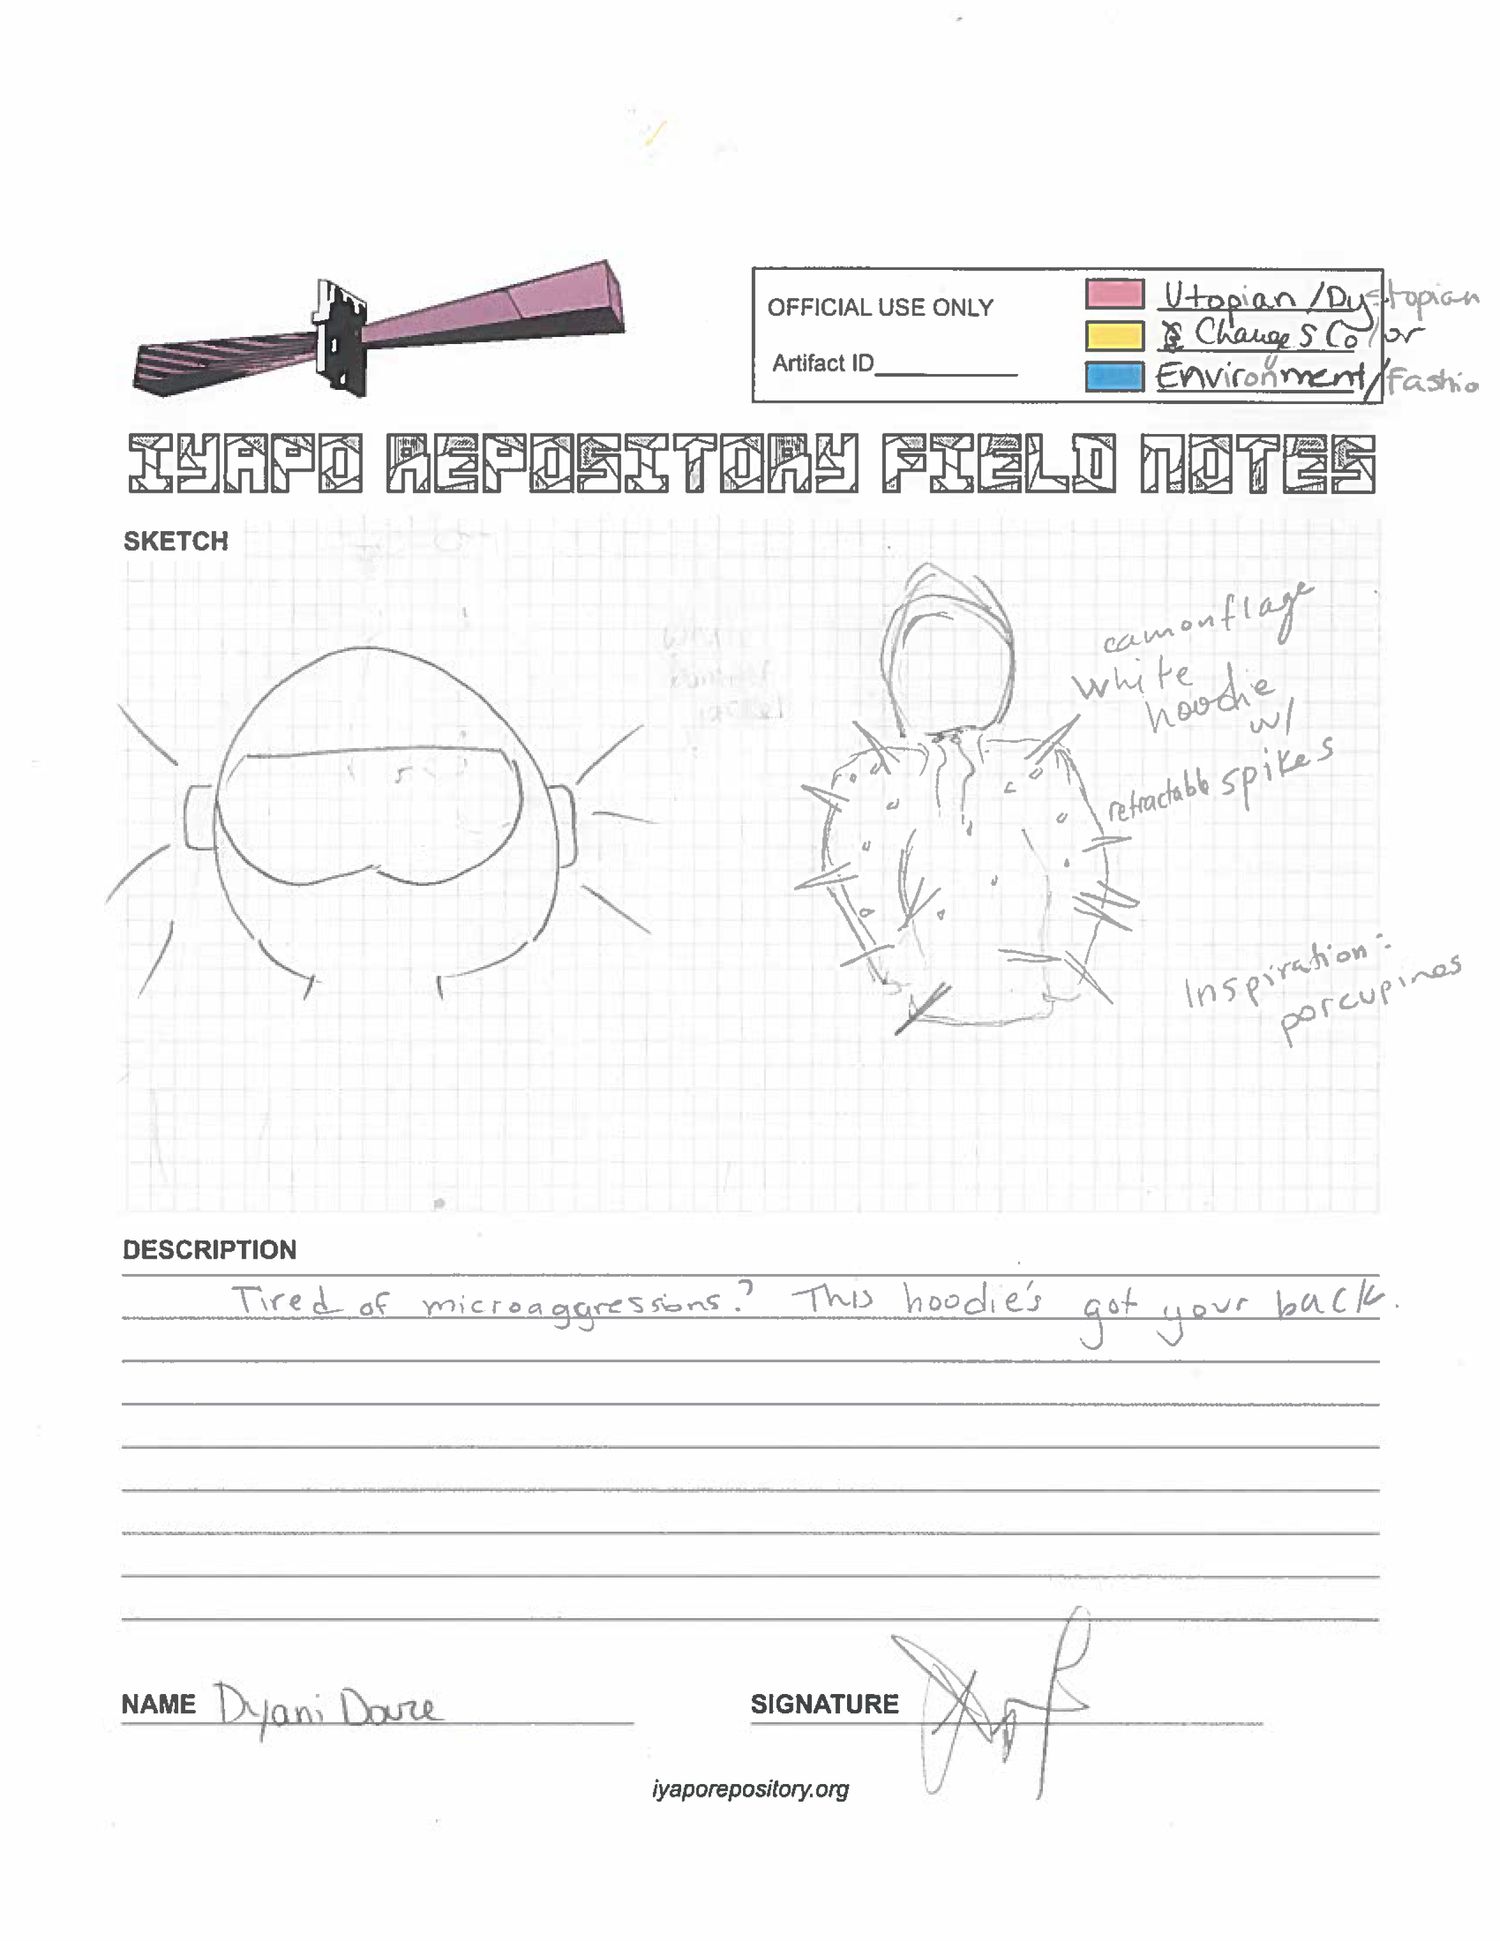 OFFICIAL USE ONLY
Artifact ID
Utopian / Dystopian
Changes Color
Environment/Fashio
IYAPO REPOSITORY FIELD NOTES
SKETCH
camonflage
white
hoodie
w/
retractable spikes
Inspiration:
porcupines
DESCRIPTION
Tired of microaggressions? This hoodie's got your back.
NAME Dyani
SIGNATURE
iyaporepository.org